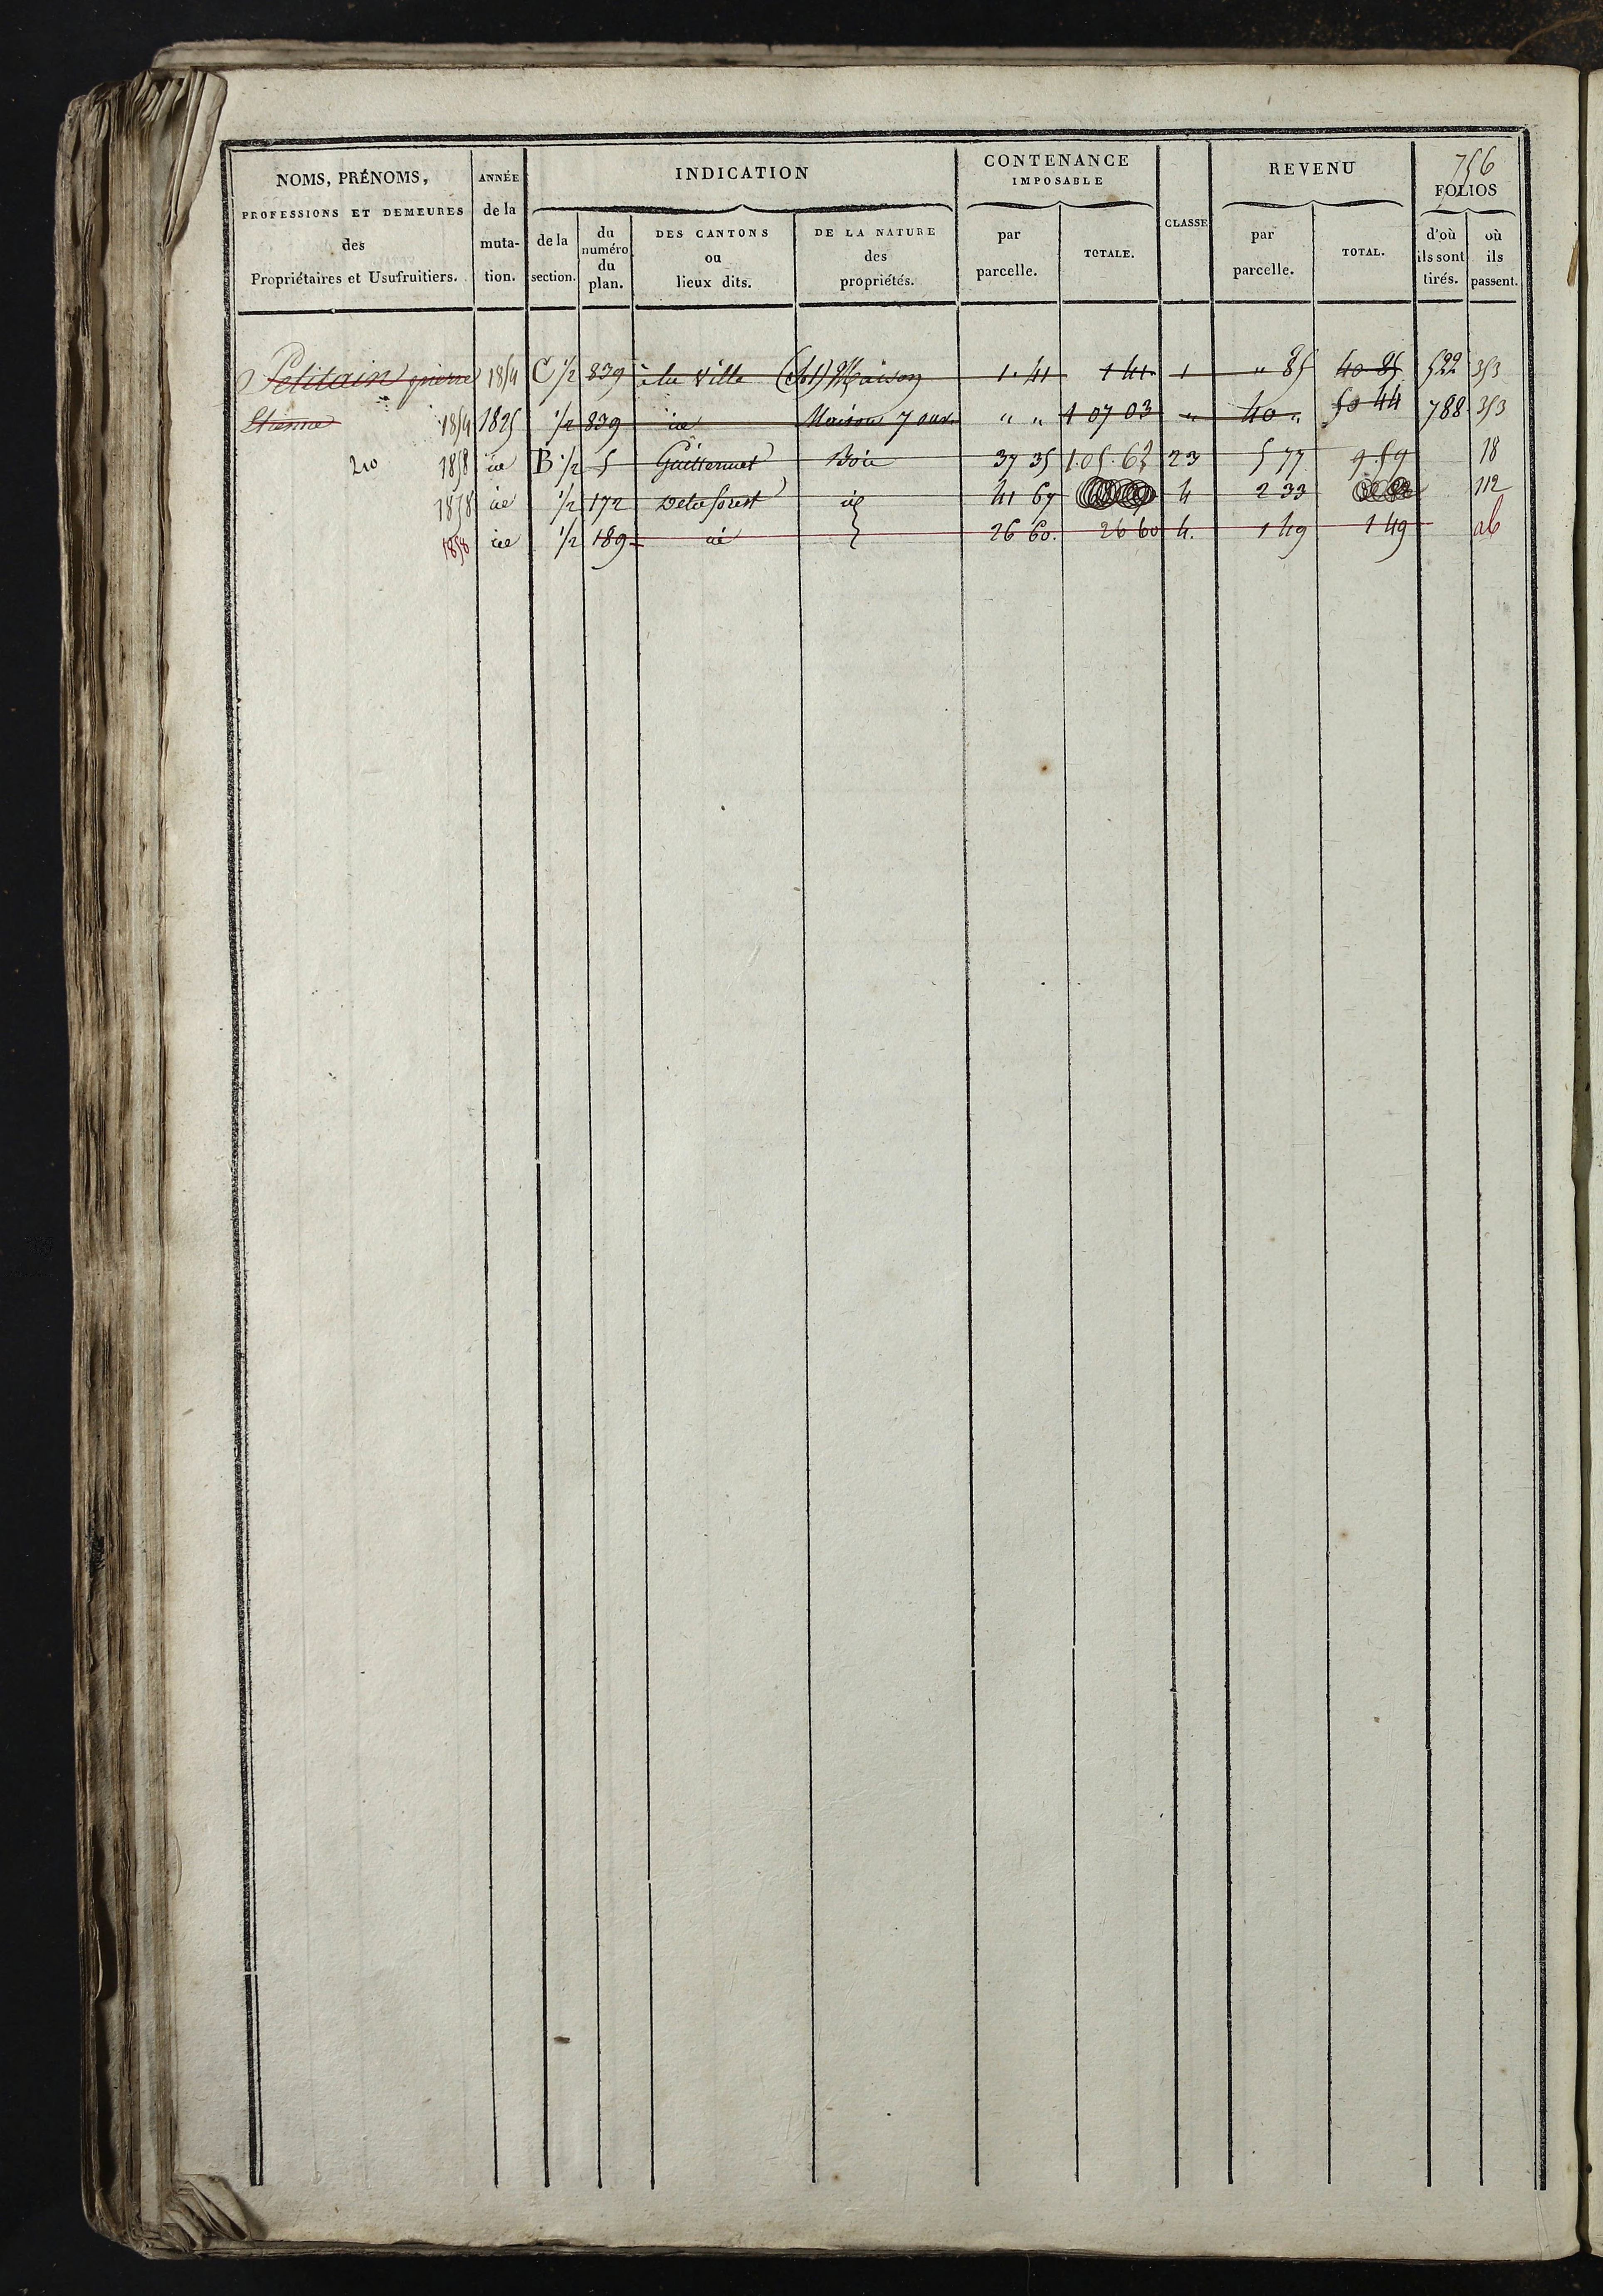 756
NOMS, PRÉNOMS, PROFESSIONS ET DEMEURES des Propriétaires et Usufruitiers.
ANNÉE de la muta- tion.
INDICATION
de la section.
du numéro du plan.
DES CANTONS ou lieux dits.
DE LA NATURE des propriétés.
CONTENANCE IMPOSABLE
par parcelle.
TOTALE.
CLASSE
REVENU
par parcelle.
TOTAL.
FOLIOS
d'où ils sont tirés.
où ils passent.
Petitain pierre 1854 C 1/2 839 à la Ville (Sol) Maison 1. 41 1 41 1 " 85 40 85 522 353
Etienne 1854 1825 1/2 839 id Maison 7 ouv. " " 1 07 03 " 40 " 50 44 788 353
210 1858 id B 1/2 5 Guillermet Bois 37 35 1.05.62 23 5 77 9.59 18
1858 id 1/2 172 Delaforest id 41 67 4 2 33 112
1858 id 1/2 189 id 26 60. 26 60 4. 1 49 1 49 ab